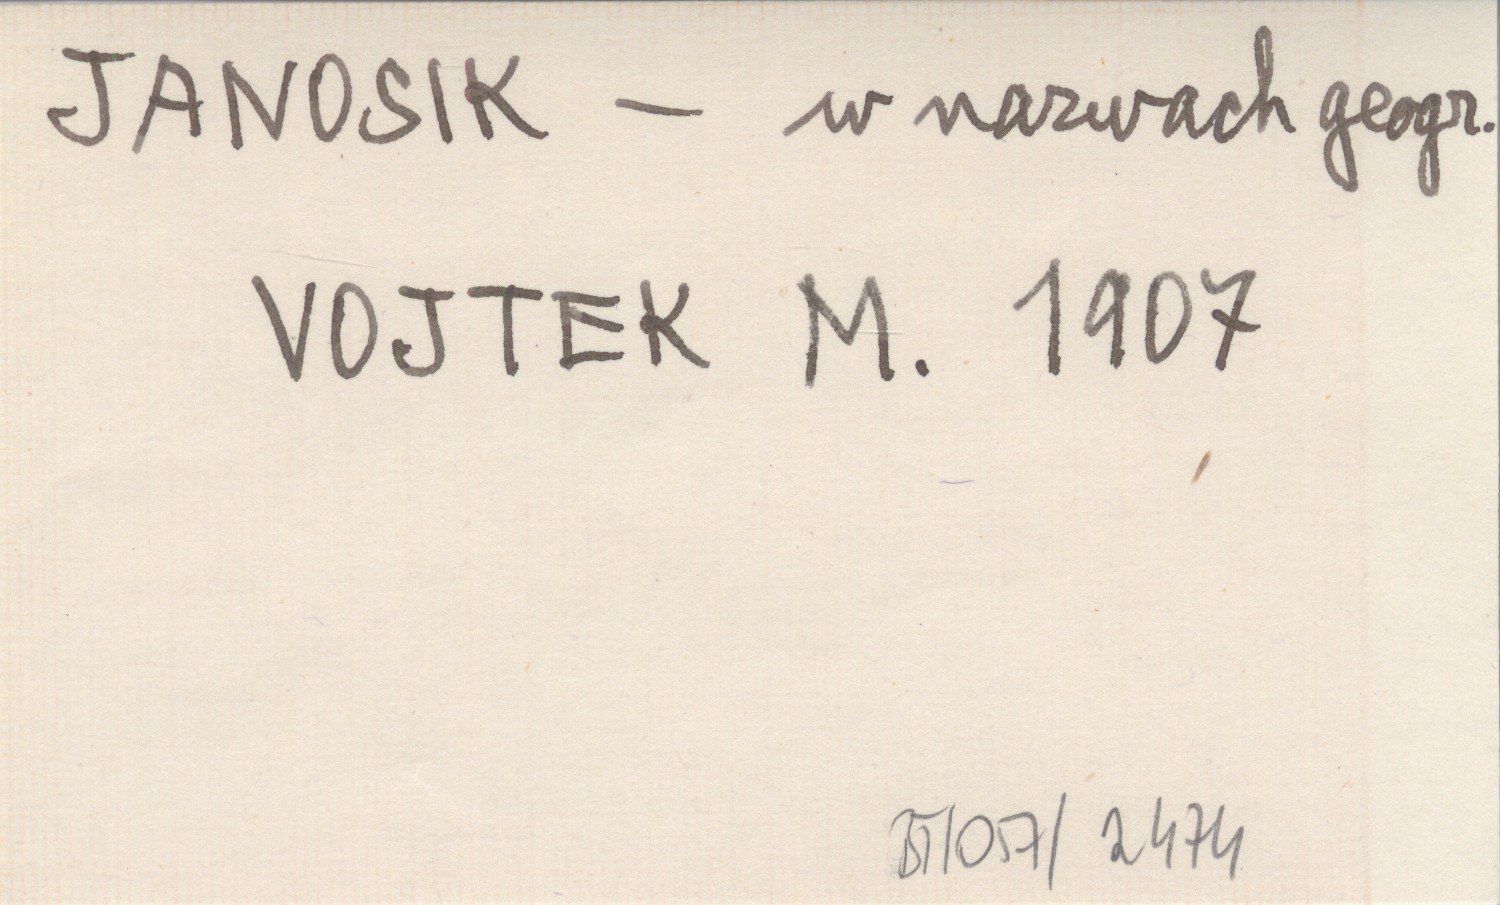 JANOSIK — w nazwach geogr.
VOJTEK M. 1907
2474